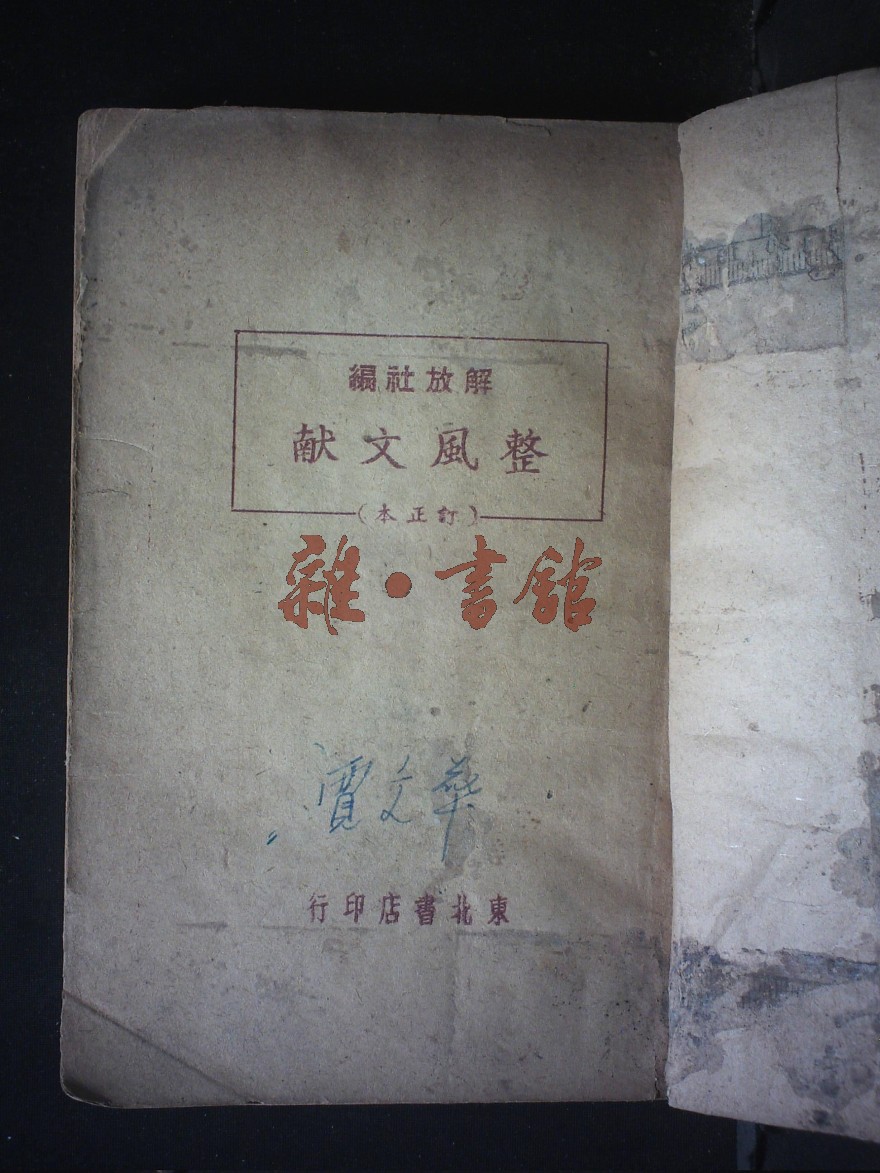 解放社編
整風文献
(訂正本)
雜•書舘
賈文華
東北書店印行